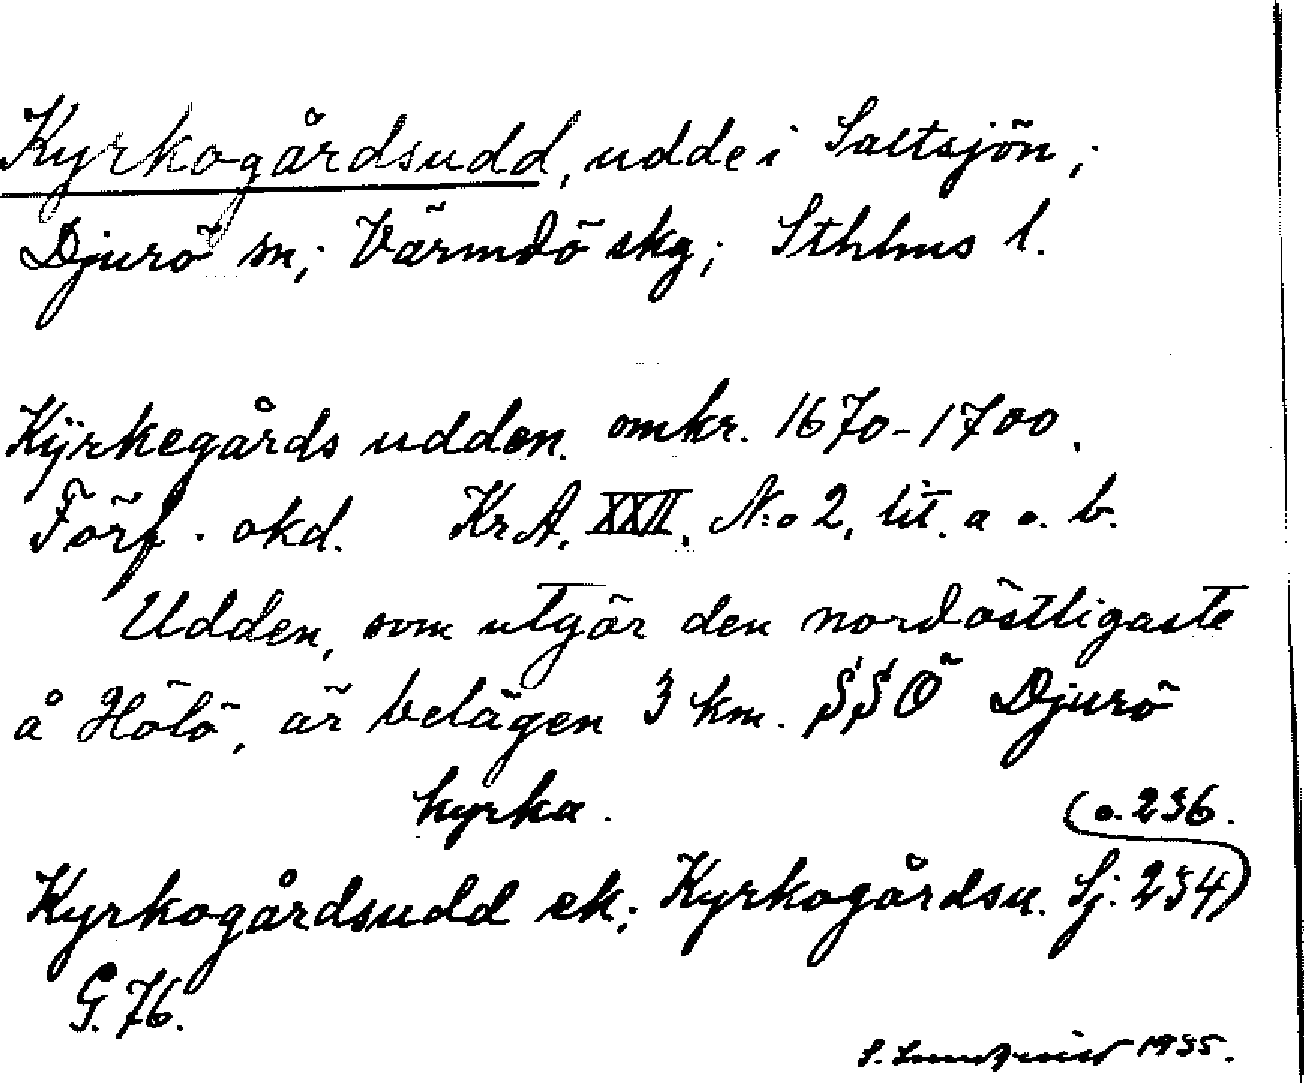 Kyrkogårdsudd, udde i Saltsjön;
Djurö sn; Värmdö skg; Sthlms l.
Kÿrkegårds udden. omkr. 1670-1700.
Förf. okd. KrA. XXII, N:o 2, lit. a o. b.
Udden, som utgör den nordöstligaste
å Hölö, är belägen 3 km. SSÖ Djurö
kyrka.
Kyrkogårdsudd ek; Kyrkogårdsu. Sj. 234)
(o. 236.
G. 76.
S. Lundqvist 1935.